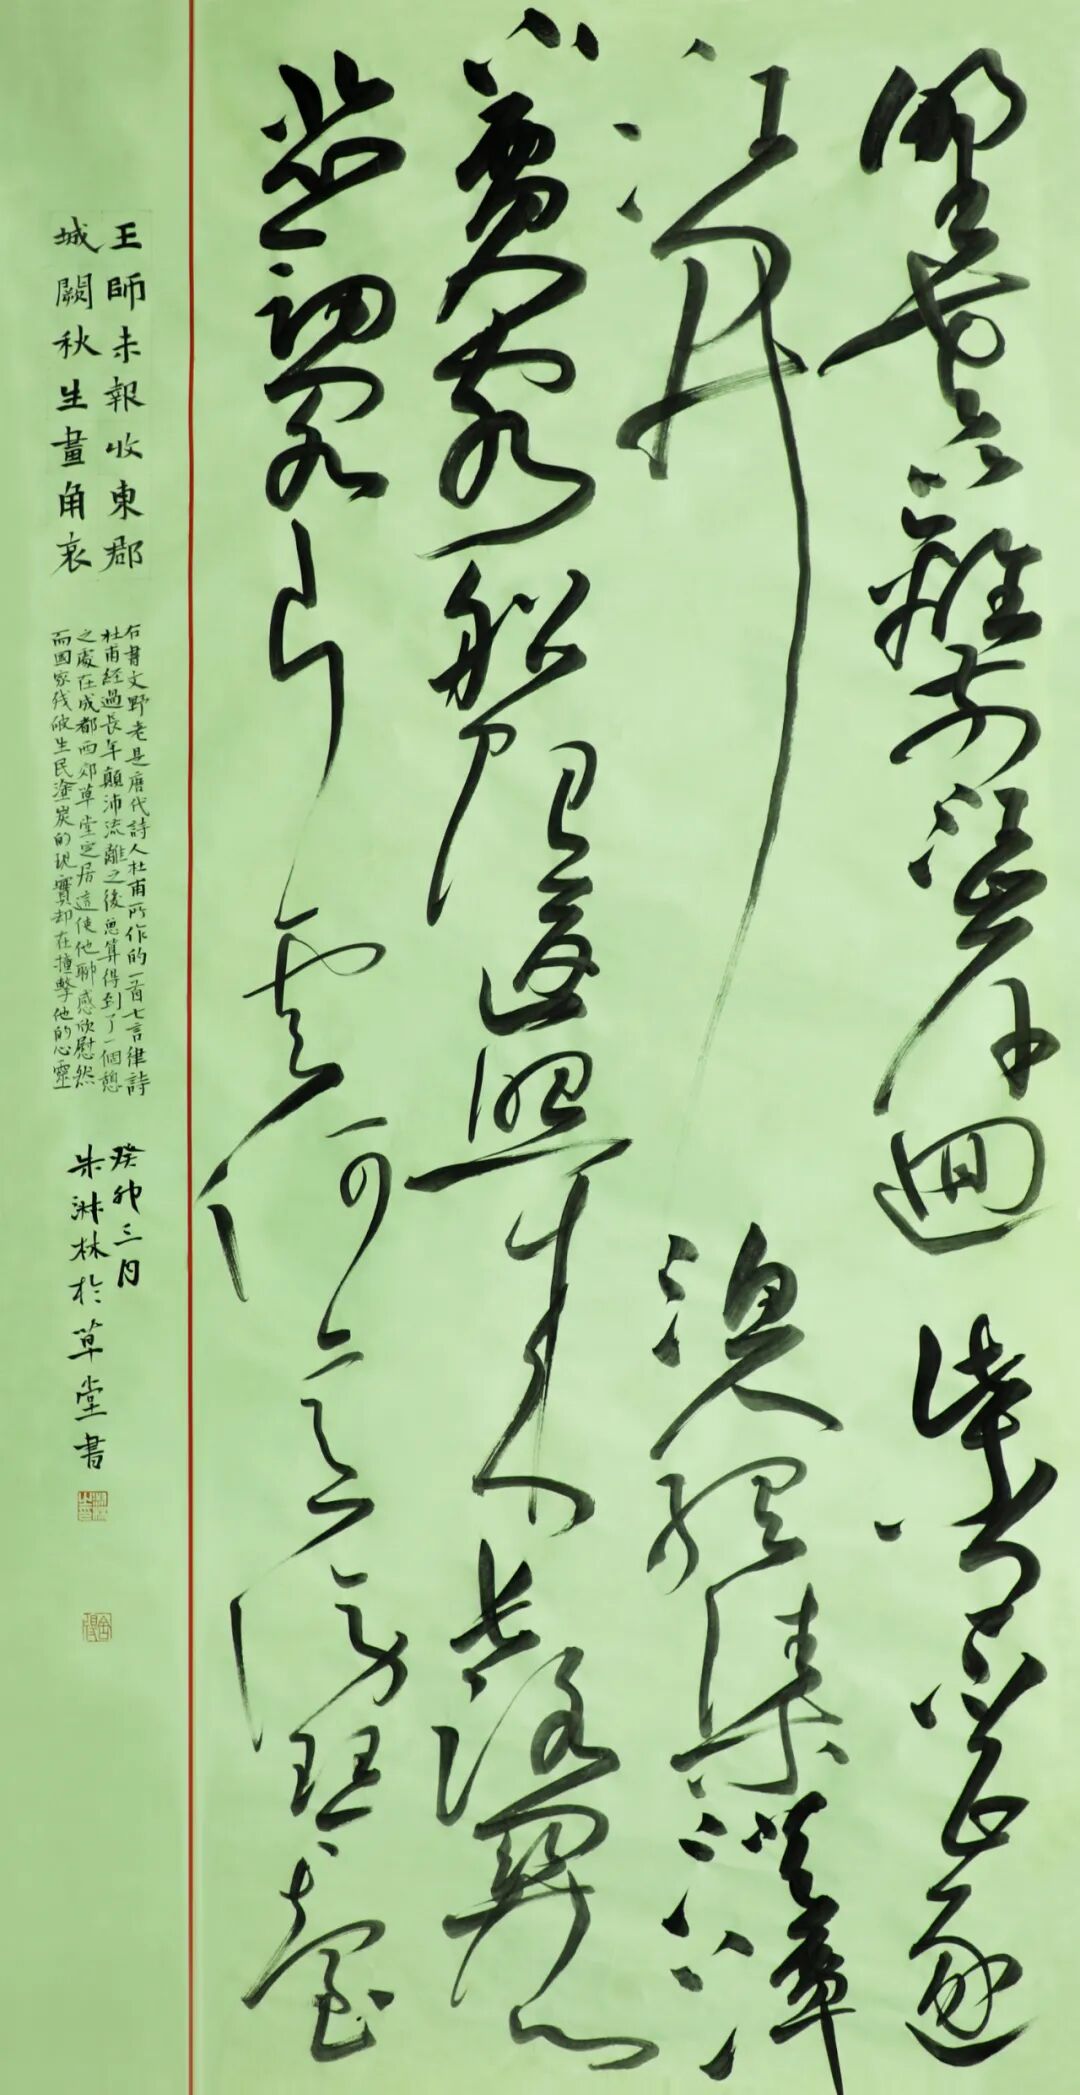 野老籬前江岸迴柴門不正逐
江開漁人網集澄潭
下賈客船隨返照來長路關心
悲劍閣片雲何意傍琴臺
王師未報收東郡
城闕秋生畫角哀
右書文野老是唐代詩人杜甫所作的一首七言律詩
杜甫經過長年顛沛流離之後總算得到了一個憩
之處在成都西郊草堂定居這使他聊感欣慰然
而國家殘破生民塗炭的現實却在撞擊他的心靈
癸卯三月
朱林於草堂書